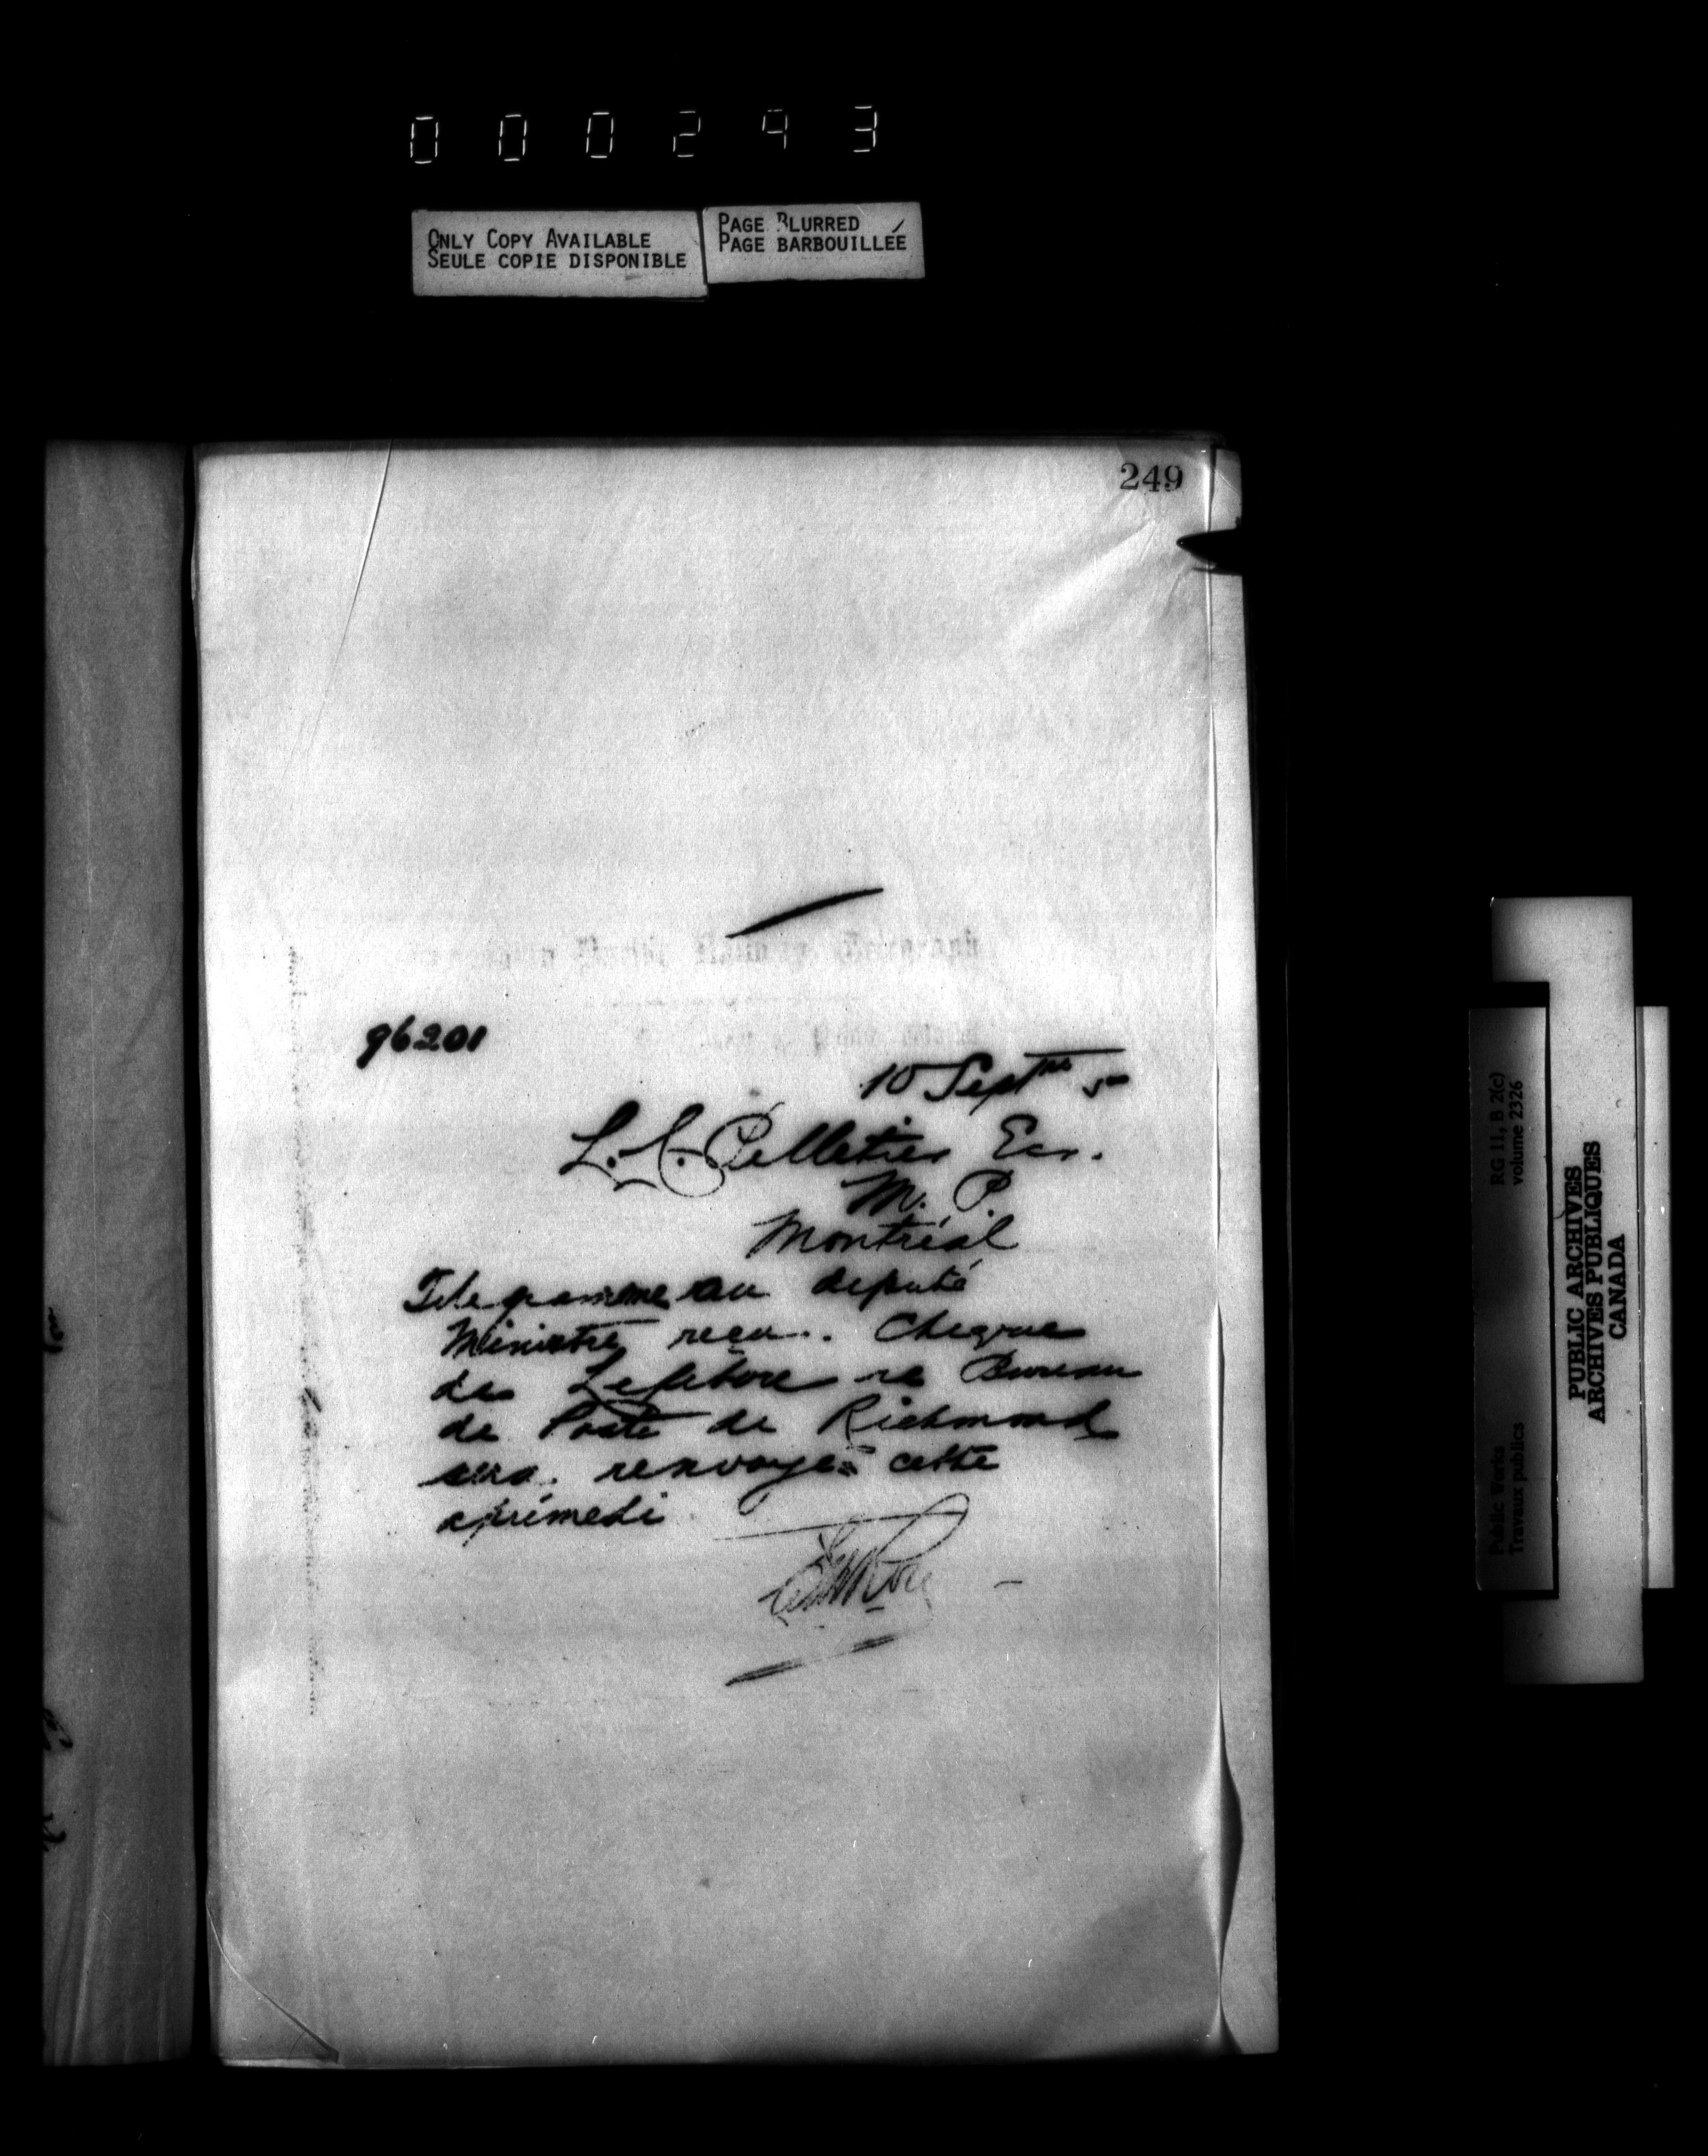 000293
ONLY COPY AVAILABLE
SEULE COPIE DISPONIBLE
PAGE BLURRED
PAGE BARBOUILLÉE
249
96201
10 Septbre 5
L. C. Pelletier Ecr.
M. P.
Montréal
Telegramme au deputé
Ministre reçu. Cheque
de Lefebvre re Bureau
de Poste de Richmond
sera renvoyé cette
aprèmedi
RG 11, B 2(c)
volume 2326
Public Works
Travaux publics
PUBLIC ARCHIVES
ARCHIVES PUBLIQUES
CANADA